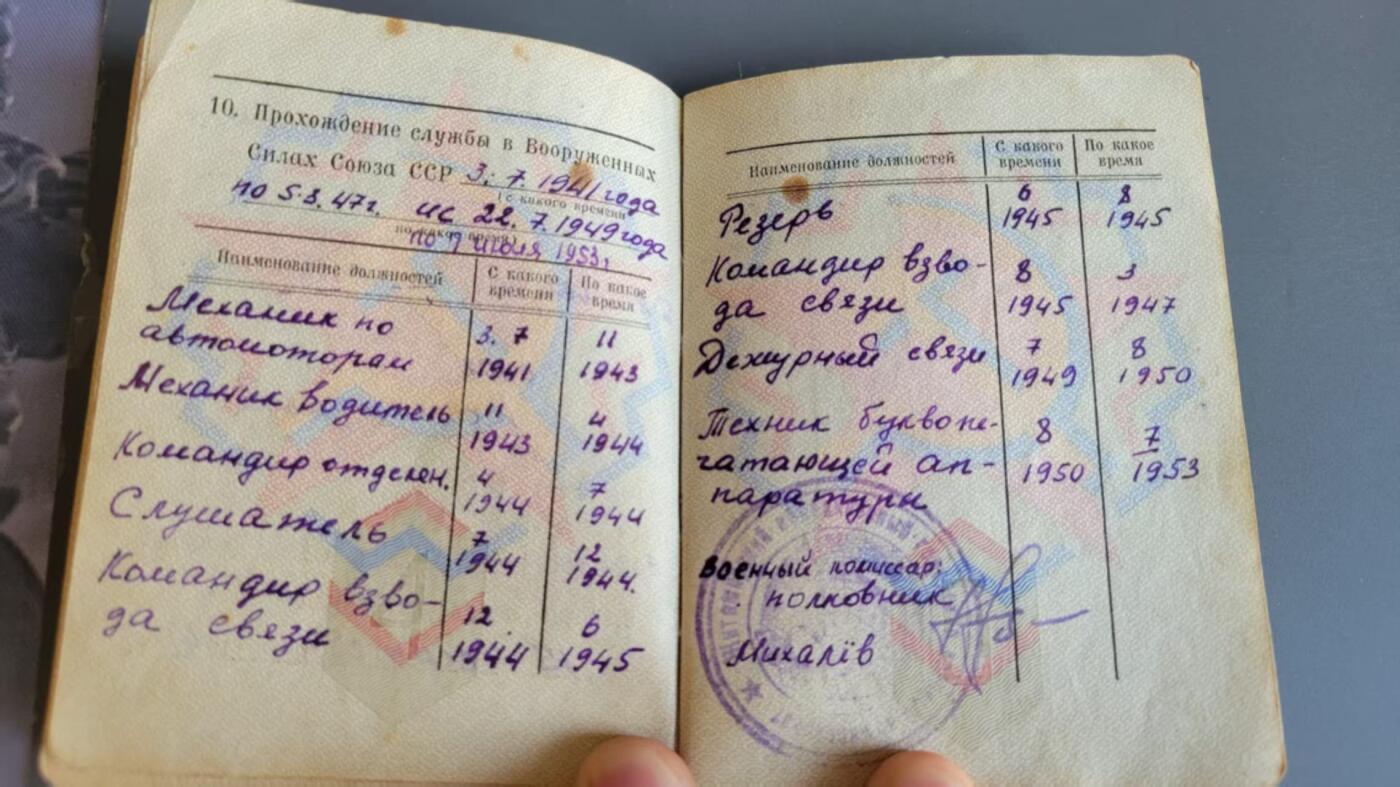 10. Прохождение службы в Вооруженных
Силах Союза ССР 3. 7. 1941 года
(с какого времени
по 5.3.47г. и с 22. 7. 1949 года
по 9 июля 1953г
Наименование должностей С какого времени По какое время
Механик по
автомоторам 3. 7 1941 11 1943
Механик водитель 11 1943 4 1944
Командир отделен. 4 1944 7 1944
Слушатель 7 1944 12 1944.
Командир взво-
да связи 12. 1944 6 1945
Наименование должностей С какого времени По какое время
Резерв 6 1945 8 1945
Командир взво-
да связи 8 1945 3 1947
Дежурный связи 7 1949 8 1950
Техник буквопе-
чатающей ап-
паратуры 8 1950 7 1953
Военный комиссар:
полковник
Михалёв